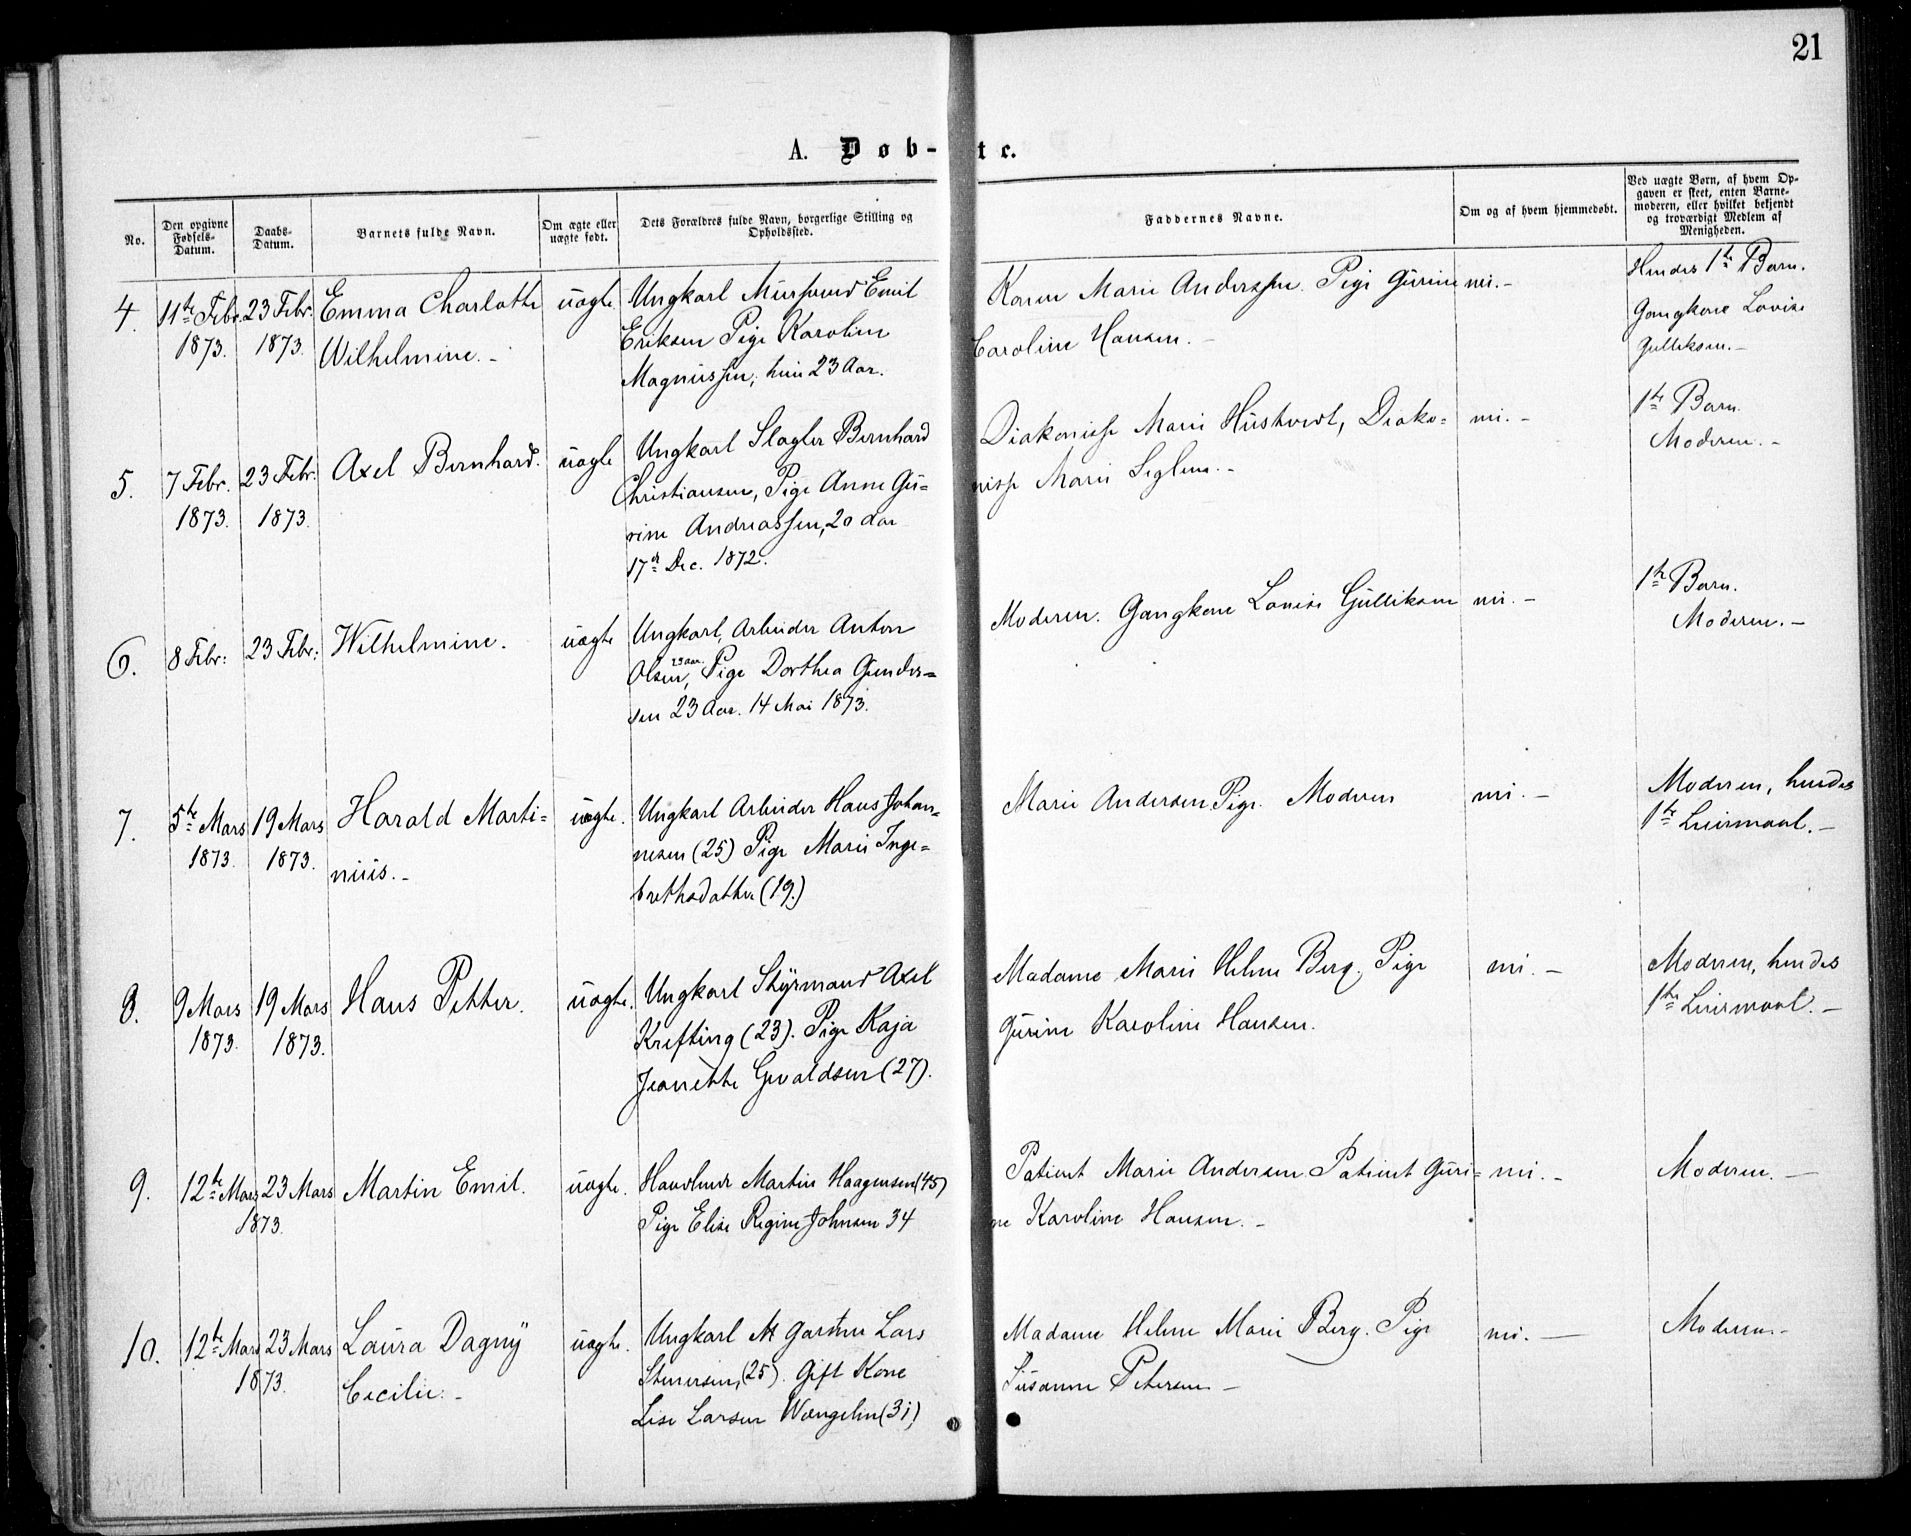 21
A. Døb-te.
No.
Den opgivne Fødsels-Datum.
Daabs-Datum.
Barnets fulde Navn.
Om ægte eller uægte født.
Dets Forældres fulde Navn, borgerlige Stilling og Opholdssted.
Faddernes Navne.
Om og af hvem hjemmedøbt.
Ved uægte Børn, af hvem Opgaven er skeet, enten Barnemoderen, eller hvilket bekjendt og troværdigt Medlem af Menigheden.
4. 11te Febr. 23 Febr. Emma Charlotte uægte Ungkarl Emil Karen Marie Anderssen. Pige Gurine nei.- Hendes 1te Barn.
1873. 1873. Wilhelmine.- Eriksen Pige Karoline Caroline Hansen.- Gangkone Lovise
Magnussen, hun 23 Aar. Gulliksen.-
5. 7 Febr. 23 Febr. Axel Bernhard. uægte Ungkarl Slagter Bernhard Diakonisse Marie Hustvedt, Diako- nei.- 1te Barn.
1873. 1873. Christiansen, Pige Anne Gu- nisse Marie Seglem.- Moderen.-
rine Andreassen, 20 Aar
17de Dec. 1872.
6. 8 Febr: 23 Febr: Wilhelmine. uægte Ungkarl, Arbeider Anton Moderen. Gangkone Lovise Gulliksen nei.- 1te Barn.
Olsen, 23 Aar. Pige Dorthea Gunder- Moderen.-
sen 23 Aar. 14 Mai 1873.
7. 5te Mars 19 Mars Harald Marti- uægte. Ungkarl Arbeider Hans Johan- Marie Andersen Pige. Moderen nei.- Moderen, hendes
1873. 1873. nius.- nesen (25) Pige Marie Inge- 1te Leiermaal.-
brethsdatter (19.)
8. 9 Mars 19 Mars Hans Petter. uægte. Ungkarl Styrmand Axel Madame Marie Helene Berg. Pige nei.- Moderen, hendes
1873. 1873. Krefting (23). Pige Kaja Gurine Karoline Hansen. 1te Leiermaal.-
Jeanette Evaldsen (27).
9. 12te Mars 23 Mars Martin Emil. uægte. Martin Haagensen (45) Patient Marie Andersen. Patient Guri- nei.- Moderen.-
1873. Pige Elise Regine Johnsen 34 ne Karoline Hansen.-
10. 12te Mars 23 Mars Laura Dagny uægte. Ungkarl Lars Madame Helene Marie Berg. Pige nei.- Moderen.-
1873. Cecilie.- Stenersen, (25). Gift Kone Susanne Petersen-
Lise Larsen Wængelin (31)